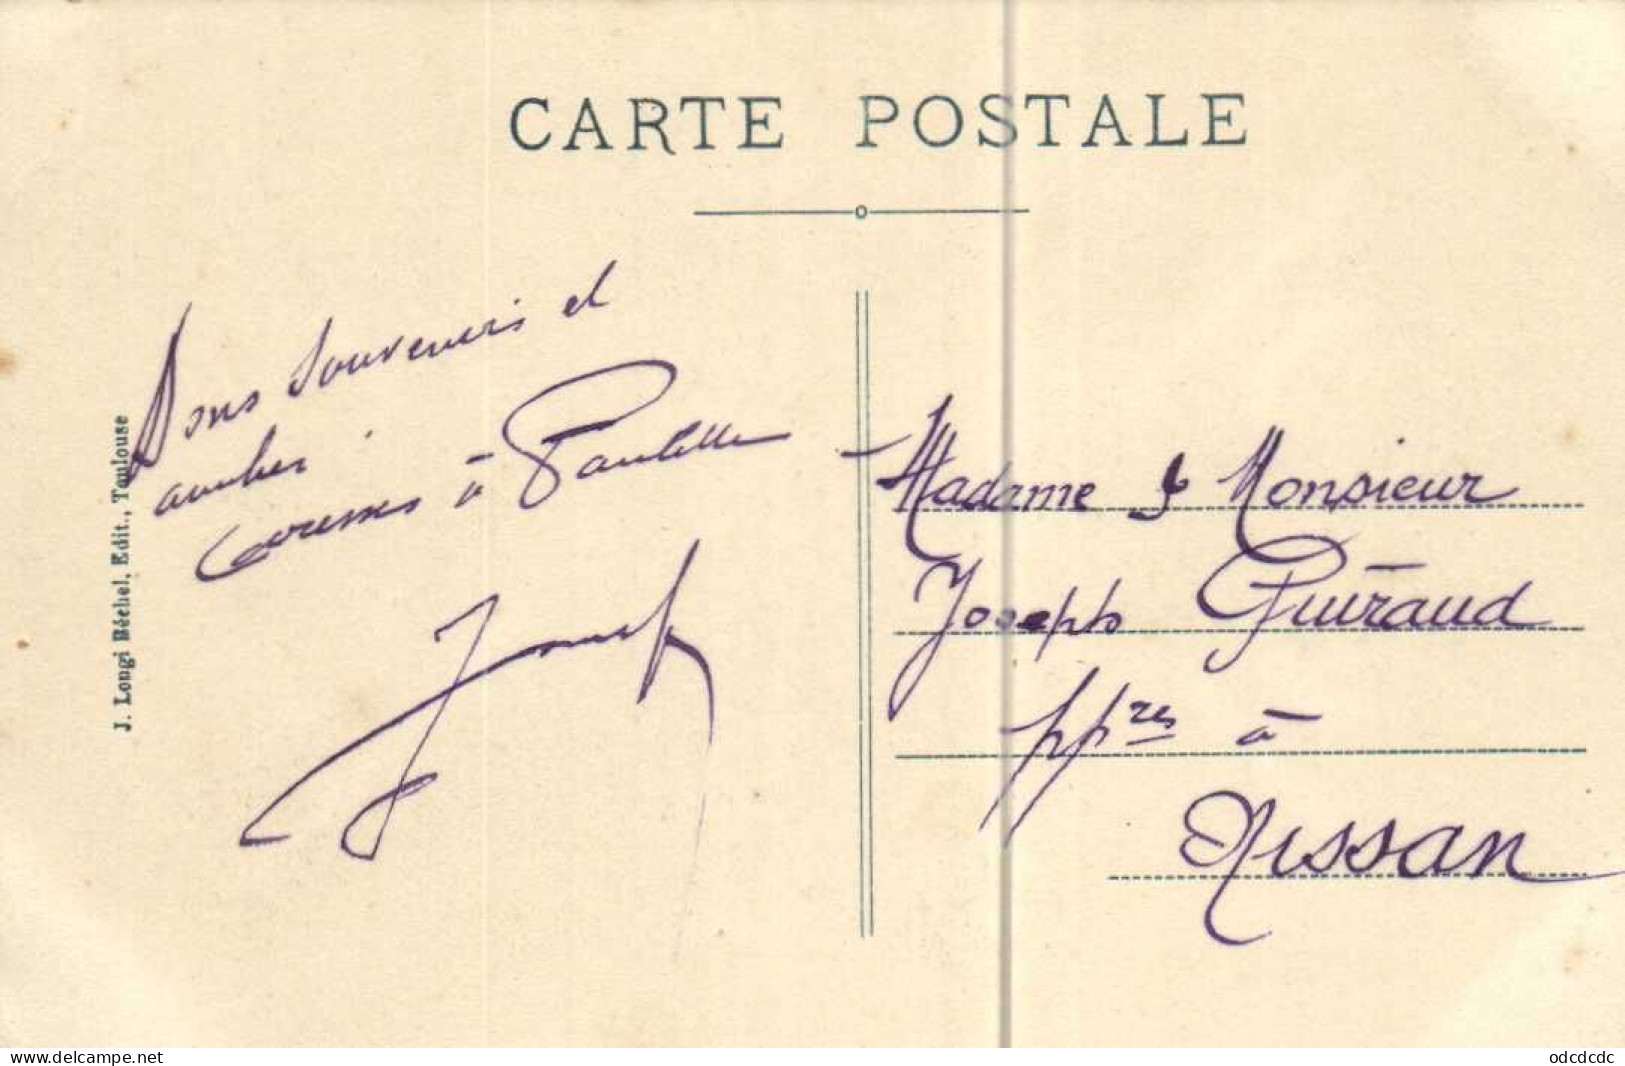 CARTE POSTALE
Bons souvenirs et
amitiés
Caresses à Paulette
Joseph
J. Longi Béchel, Edit., Toulouse
Madame & Monsieur
Joseph Guiraud
pp res à
Nissan
www.delcampe.net
odcdcdc